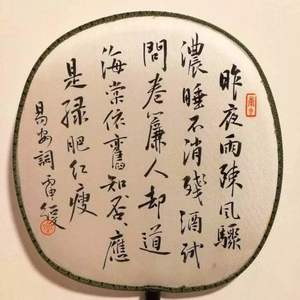 昨夜雨疎風驟
濃睡不消殘酒試
問卷簾人却道
海棠依舊知否應
是綠肥红瘦
易安詞